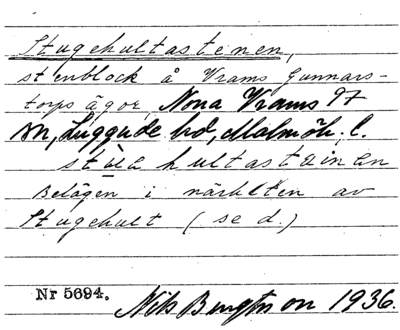 Stugehultastenen,
stenblock å Vrams Gunnars-
torps ägor, Norra Vrams 97
sn, Luggude hd, Malmöh. l.
Belägen i närheten av
Stugehult (se d.)
Nr 5694. Nils Bengtsson 1936.